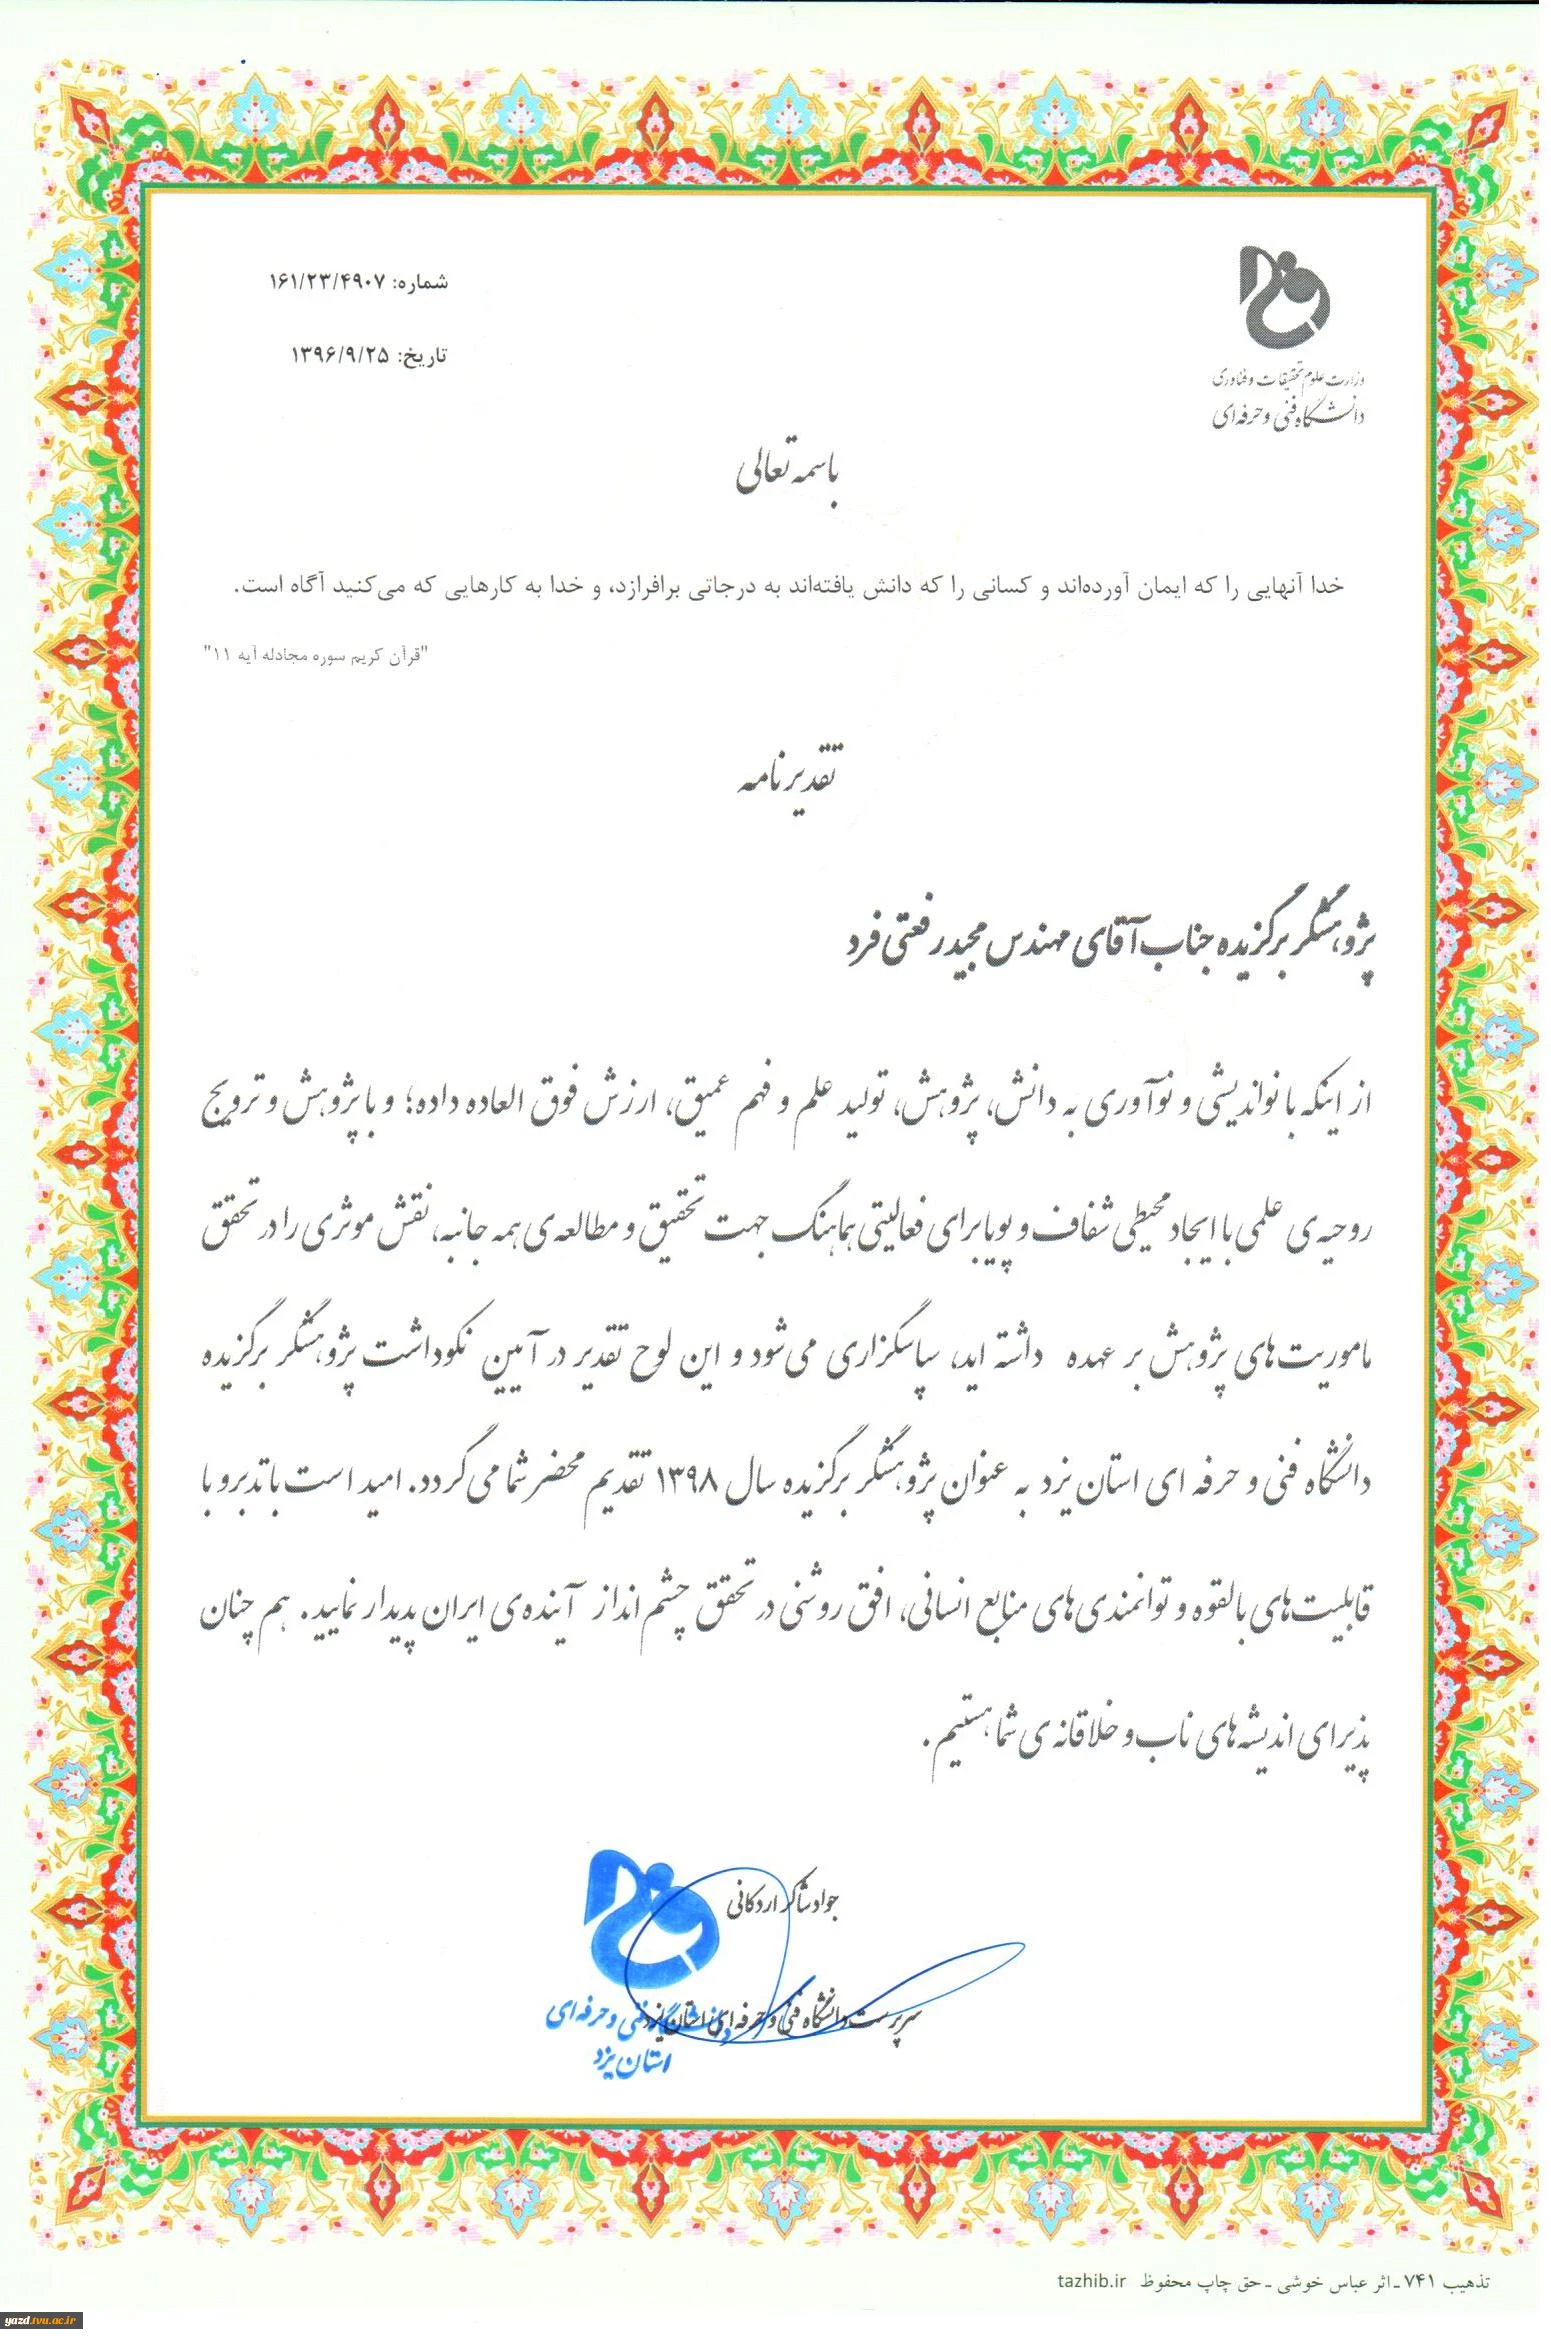 شماره: ۱۶۱/۲۳/۴۹۰۷
تاریخ: ۱۳۹۶/۹/۲۵
وزارت علوم تحقیقات و فناوری
دانشگاه فنی و حرفه ای
باسمه تعالی
خدا آنهایی را که ایمان آورده‌اند و کسانی را که دانش یافته‌اند به درجاتی برافرازد، و خدا به کارهایی که می‌کنید آگاه است.
"قرآن کریم سوره مجادله آیه ۱۱"
تقدیرنامه
پژوهشگر برگزیده جناب آقای مهندس مجید رفعتی فرد
از اینکه با نواندیشی و نوآوری به دانش، پژوهش، تولید علم و فهم عمیق، ارزش فوق العاده داده؛ و با پژوهش و ترویج
روحیه‌ی علمی با ایجاد محیطی شفاف و پویا برای فعالیتی هماهنگ جهت تحقیق و مطالعه‌ی همه جانبه، نقش موثری را در تحقق
ماموریت‌های پژوهش بر عهده داشته اید، سپاسگزاری می‌شود و این لوح تقدیر در آیین نکوداشت پژوهشگر برگزیده
دانشگاه فنی و حرفه ای استان یزد به عنوان پژوهشگر برگزیده سال ۱۳۹۸ تقدیم محضر شما می گردد. امید است با تدبر و با
قابلیت‌های بالقوه و توانمندی‌های منابع انسانی، افق روشنی در تحقق چشم انداز آینده‌ی ایران پدیدار نمایید. هم چنان
پذیرای اندیشه‌های ناب و خلاقانه‌ی شما هستیم.
جواد شاکر اردکانی
سرپرست دانشگاه فنی و حرفه ای استان یزد
دانشگاه فنی و حرفه ای
استان یزد
تذهیب ۷۴۱ ـ اثر عباس خوشی ـ حق چاپ محفوظ tazhib.ir
yazd.tvu.ac.ir